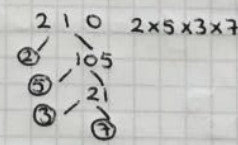 210 2×5×3×7
2 105
5 21
3 7